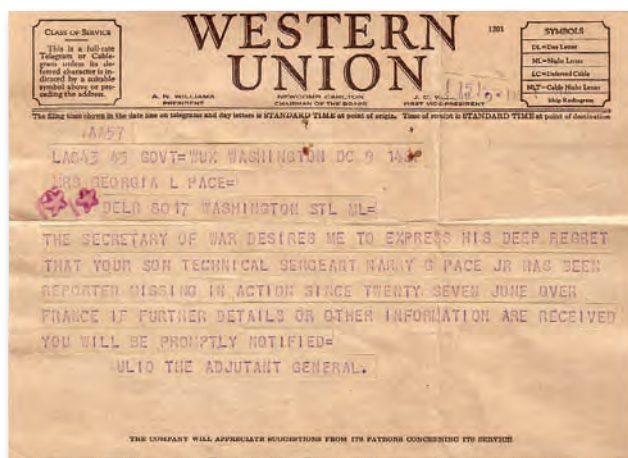 CLASS OF SERVICE
This is a full-rate
Telegram or Cable-
gram unless its de-
ferred character is
indicated by a suitable
symbol above or pre-
ceding the address.
WESTERN
UNION
1201
SYMBOLS
DL=Day Letter
NL=Night Letter
LC=Deferred Cable
NLT=Cable Night Letter
Ship Radiogram
A. N. WILLIAMS
PRESIDENT
NEWCOMB CARLTON
CHAIRMAN OF THE BOARD
J. C.
FIRST VICE-PRESIDENT
The filing time shown in the date line on telegrams and day letters is STANDARD TIME at point of origin. Time of receipt is STANDARD TIME at point of destination
AA57
45 GOVT=WUX WASHINGTON DC 9
MRS GEORGIA L PACE=
DELR 5017 WASHINGTON STL ML=
THE SECRETARY OF WAR DESIRES ME TO EXPRESS HIS DEEP REGRET
THAT YOUR SON TECHNICAL SERGEANT HARRY G PACE JR HAS BEEN
REPORTED MISSING IN ACTION SINCE TWENTY SEVEN JUNE OVER
FRANCE IF FURTHER DETAILS OR OTHER INFORMATION ARE RECEIVED
YOU WILL BE PROMPTLY NOTIFIED=
ULIO THE ADJUTANT GENERAL.
THE COMPANY WILL APPRECIATE SUGGESTIONS FROM ITS PATRONS CONCERNING ITS SERVICE